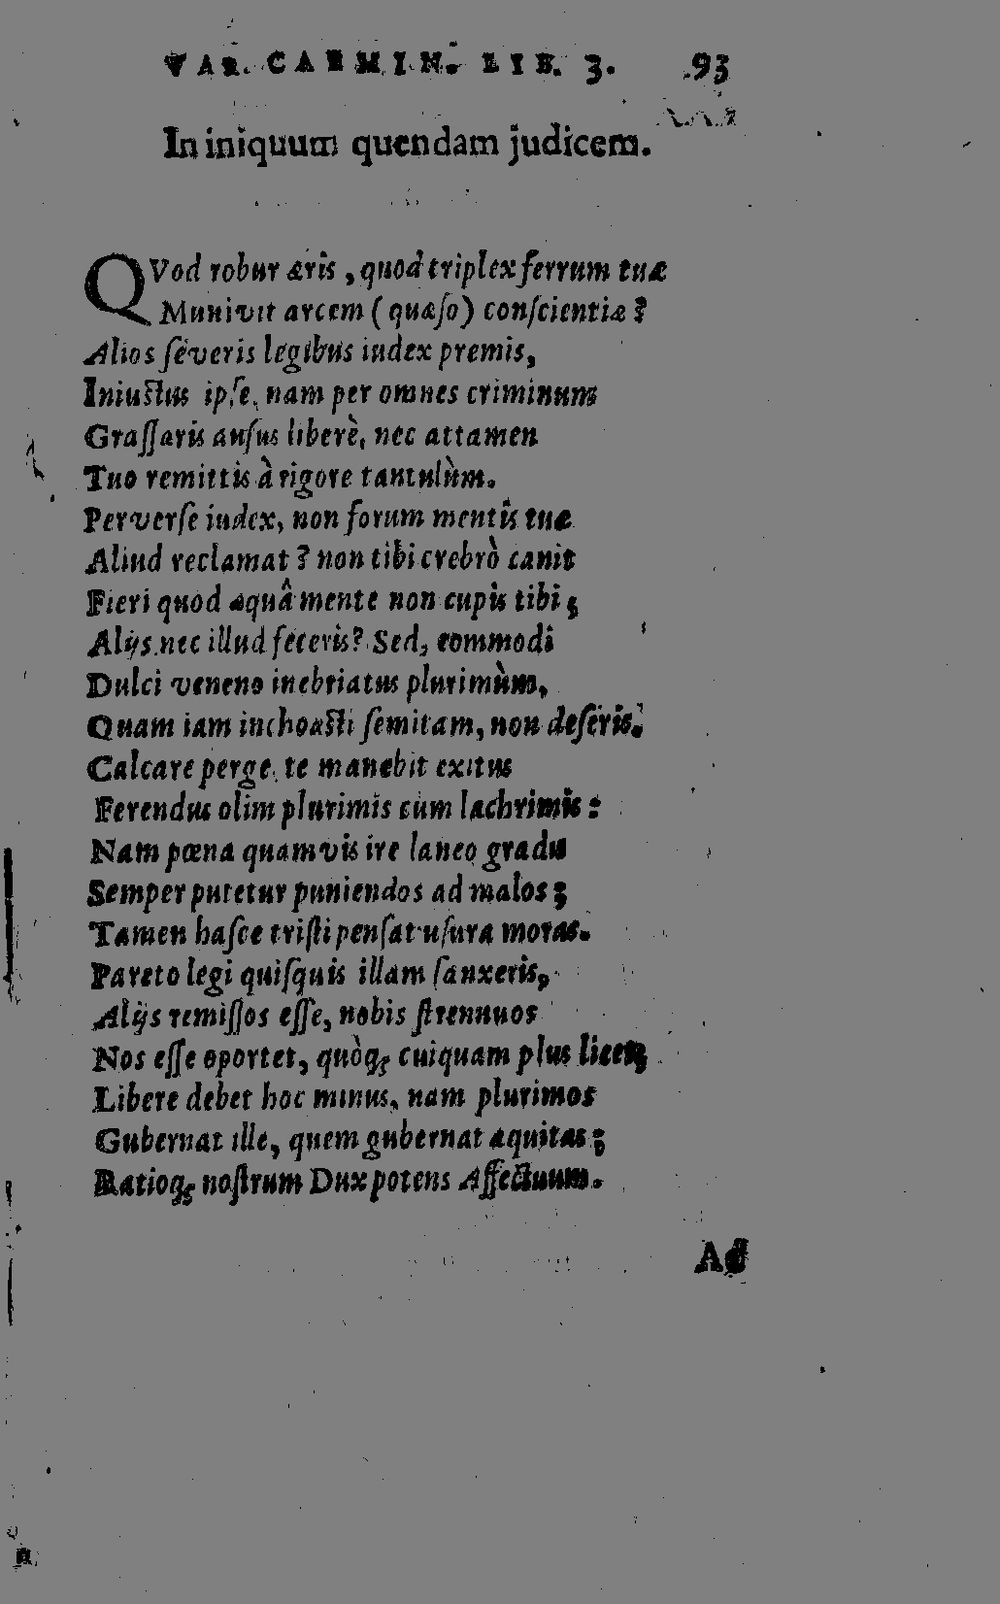 VAR. CARMIN. LIB. 3. 93
In iniquum quendam judicem.
QVod robur æris, quod triplex ferrum tuæ
Munivit arcem (quæſo) conſcientiæ?
Alios ſeveris legibus iudex premis,
Iniuſtus ipſe, nam per omnes criminum
Graſſaris auſus liberè, nec attamen
Tuo remittis à rigore tantulùm.
Perverſe iudex, non forum mentis tuæ
Aliud reclamat? non tibi crebrò canit
Fieri quod æquâ mente non cupis tibi;
Alijs nec illud feceris? Sed, commodi
Dulci veneno inebriatus plurimùm,
Quam iam inchoaſti ſemitam, non deſeris.
Calcare perge, te manebit exitus
Ferendus olim plurimis cum lachrimis:
Nam pœna quamvis ire laneo gradu
Semper putetur puniendos ad malos;
Tamen haſce triſti penſat uſura moras.
Pareto legi quiſquis illam ſanxeris,
Alijs remiſſos eſſe, nobis ſtrennuos
Nos eſſe oportet, quòq; cuiquam plus licet,
Libere debet hoc minus, nam plurimos
Gubernat ille, quem gubernat æquitas;
Ratioq; noſtrum Dux potens Affectuum.
Ad